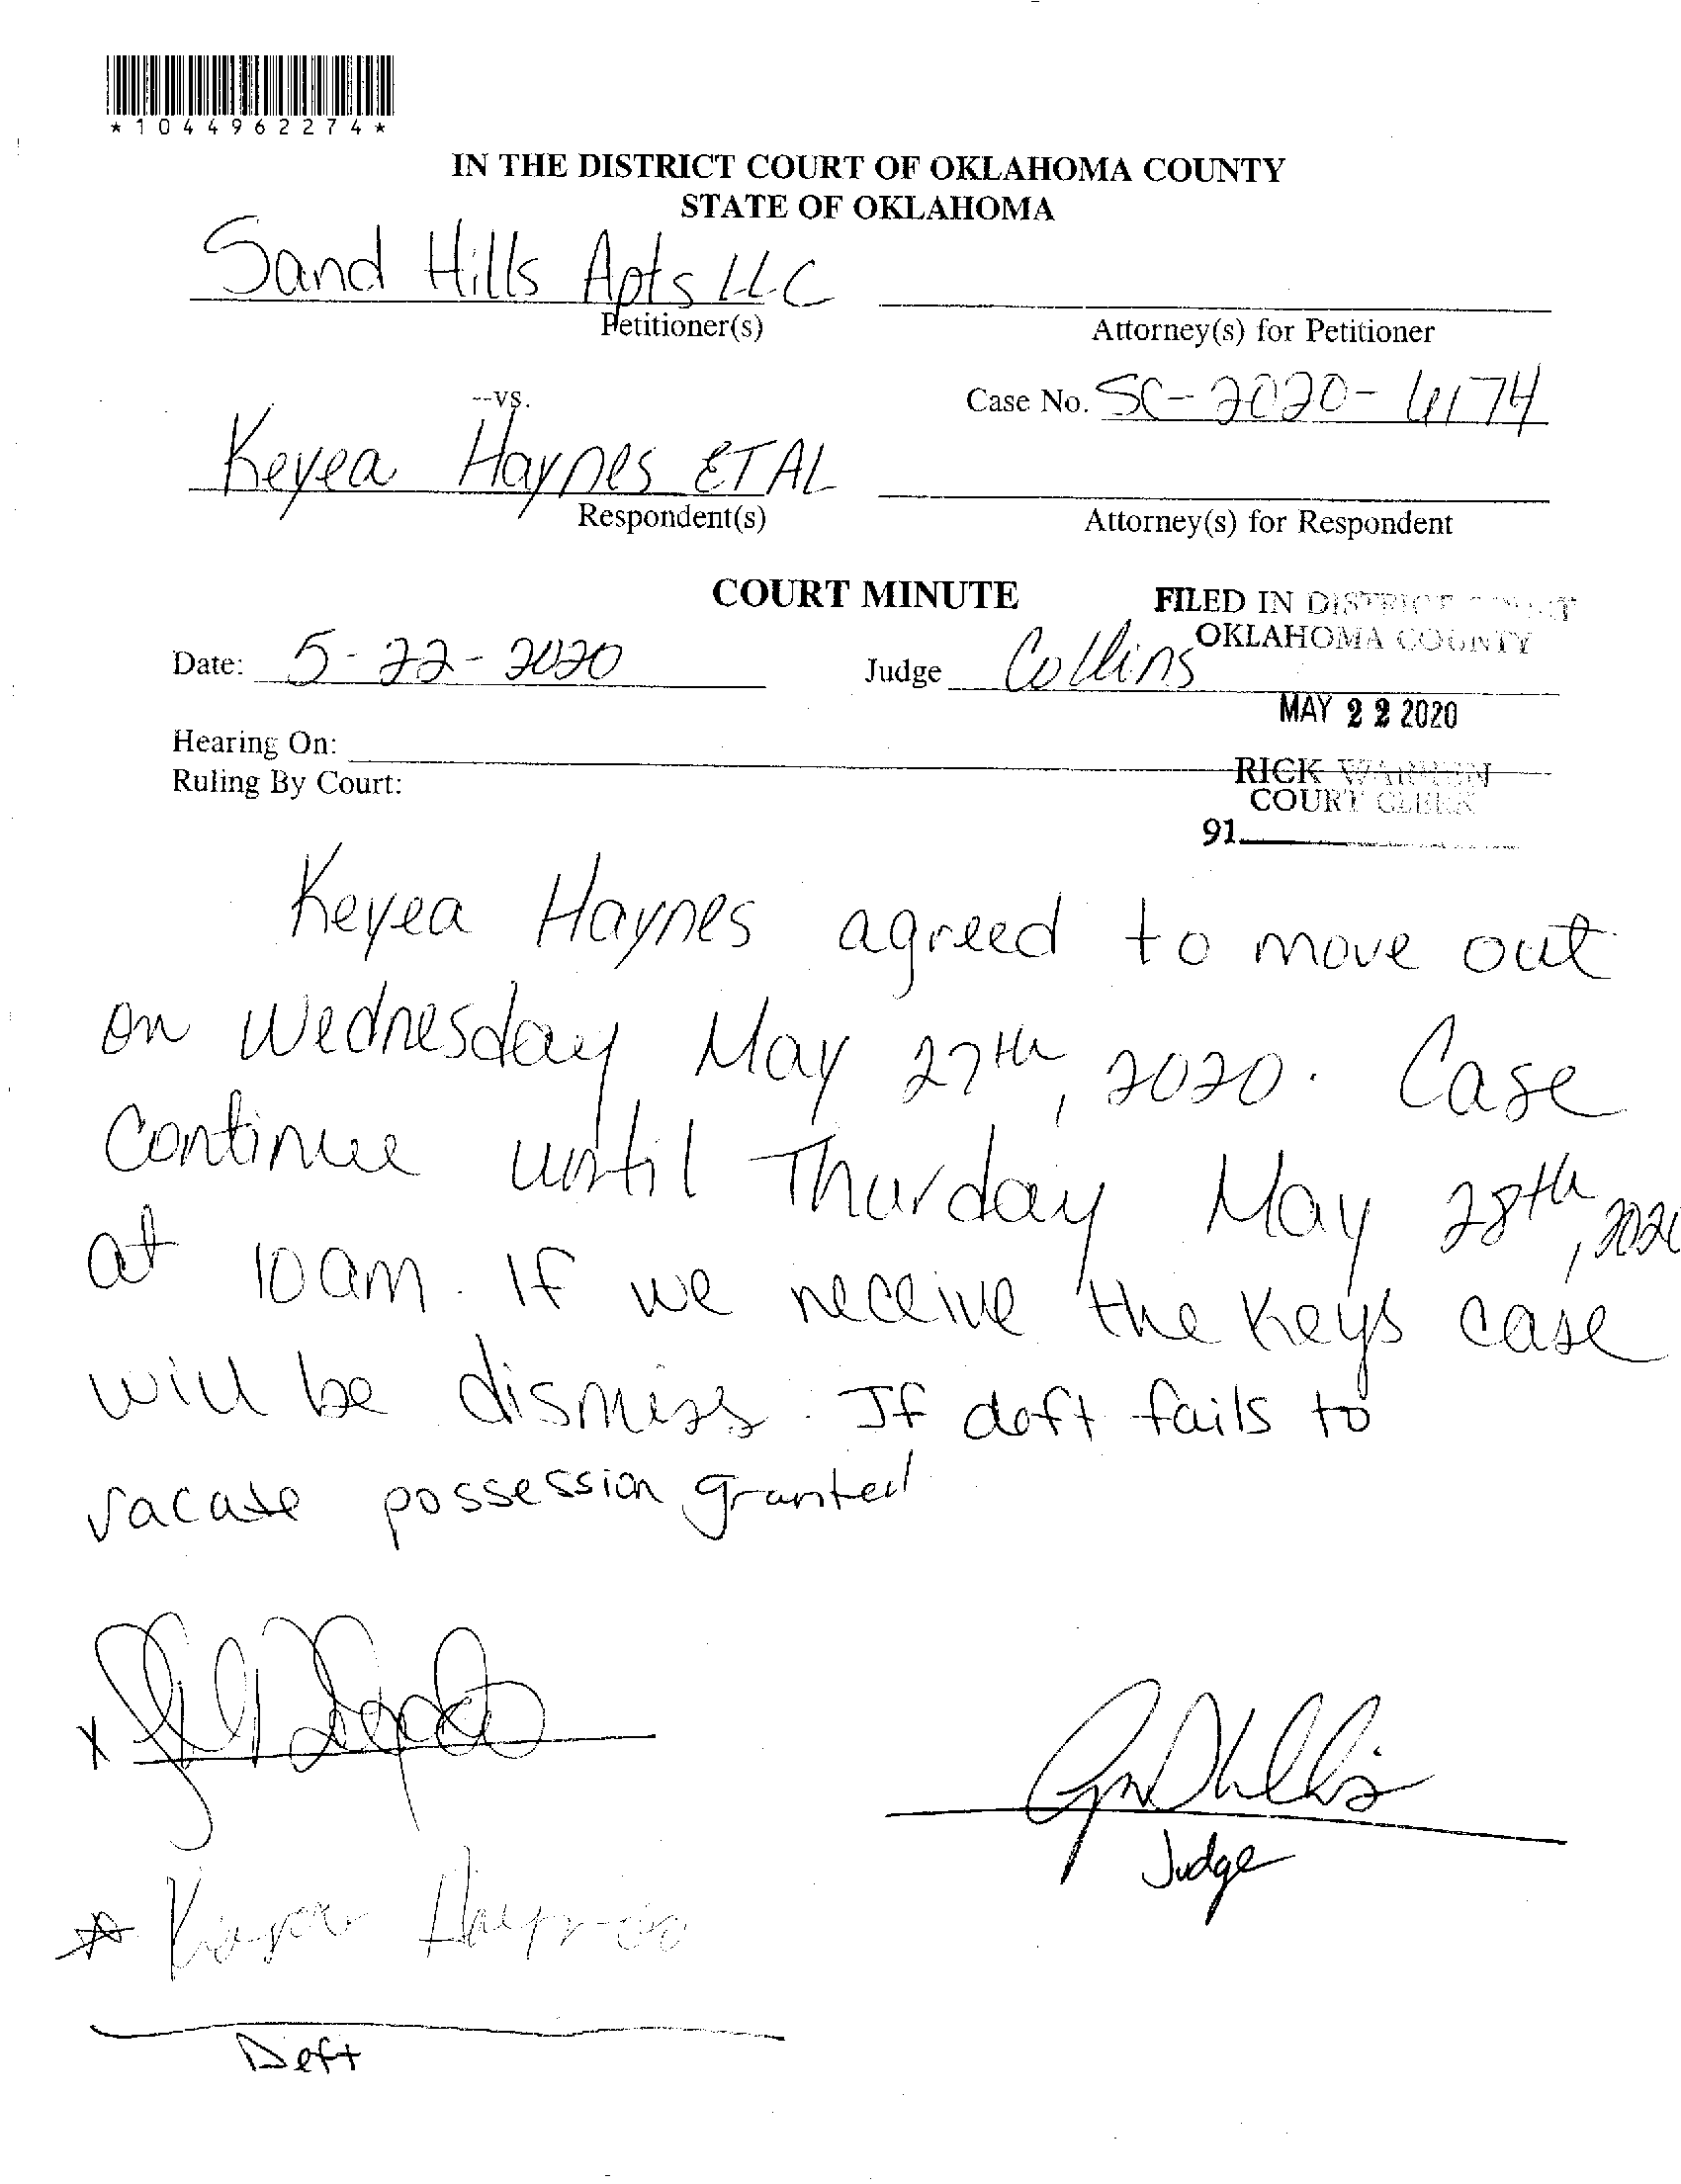 *1044962274*
IN THE DISTRICT COURT OF OKLAHOMA COUNTY
STATE OF OKLAHOMA
Sand Hills Apts LLC
Petitioner(s)
Attorney(s) for Petitioner
--vs.
Case No. SC-2020-6174
Keyea Haynes ET AL
Respondent(s)
Attorney(s) for Respondent
COURT MINUTE
FILED IN DISTRICT COURT
OKLAHOMA COUNTY
Date: 5-22-2020
Judge Collins
MAY 22 2020
Hearing On:
RICK WARREN
Ruling By Court:
COURT CLERK
91
Keyea Haynes agreed to move out
on Wednesday May 27th, 2020. Case
Continue until Thurday May 28th, 202
at 10am. If we receive the keys case
will be dismiss. If deft fails to
vacate possession granted
x
Judge
Haynes
Deft